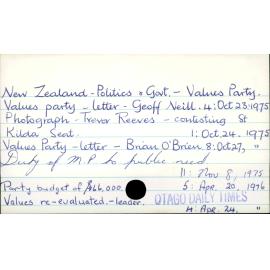 New Zealand - Politics & Govt. - Values Party.
Values party - letter - Geoff Neill. 4: Oct 23: 1975
Photograph - Trevor Reeves - contesting St
Kilda Seat. 1: Oct 24. 1975
Values Party - letter - Brian O'Brien. 8: Oct 27, "
Duty of M.P. to public need
11: Nov 8, 1975
Party budget of $66,000. 5: Apr. 20, 1976
Values re-evaluated. - leader. OTAGO DAILY TIMES
4: Apr. 24. "